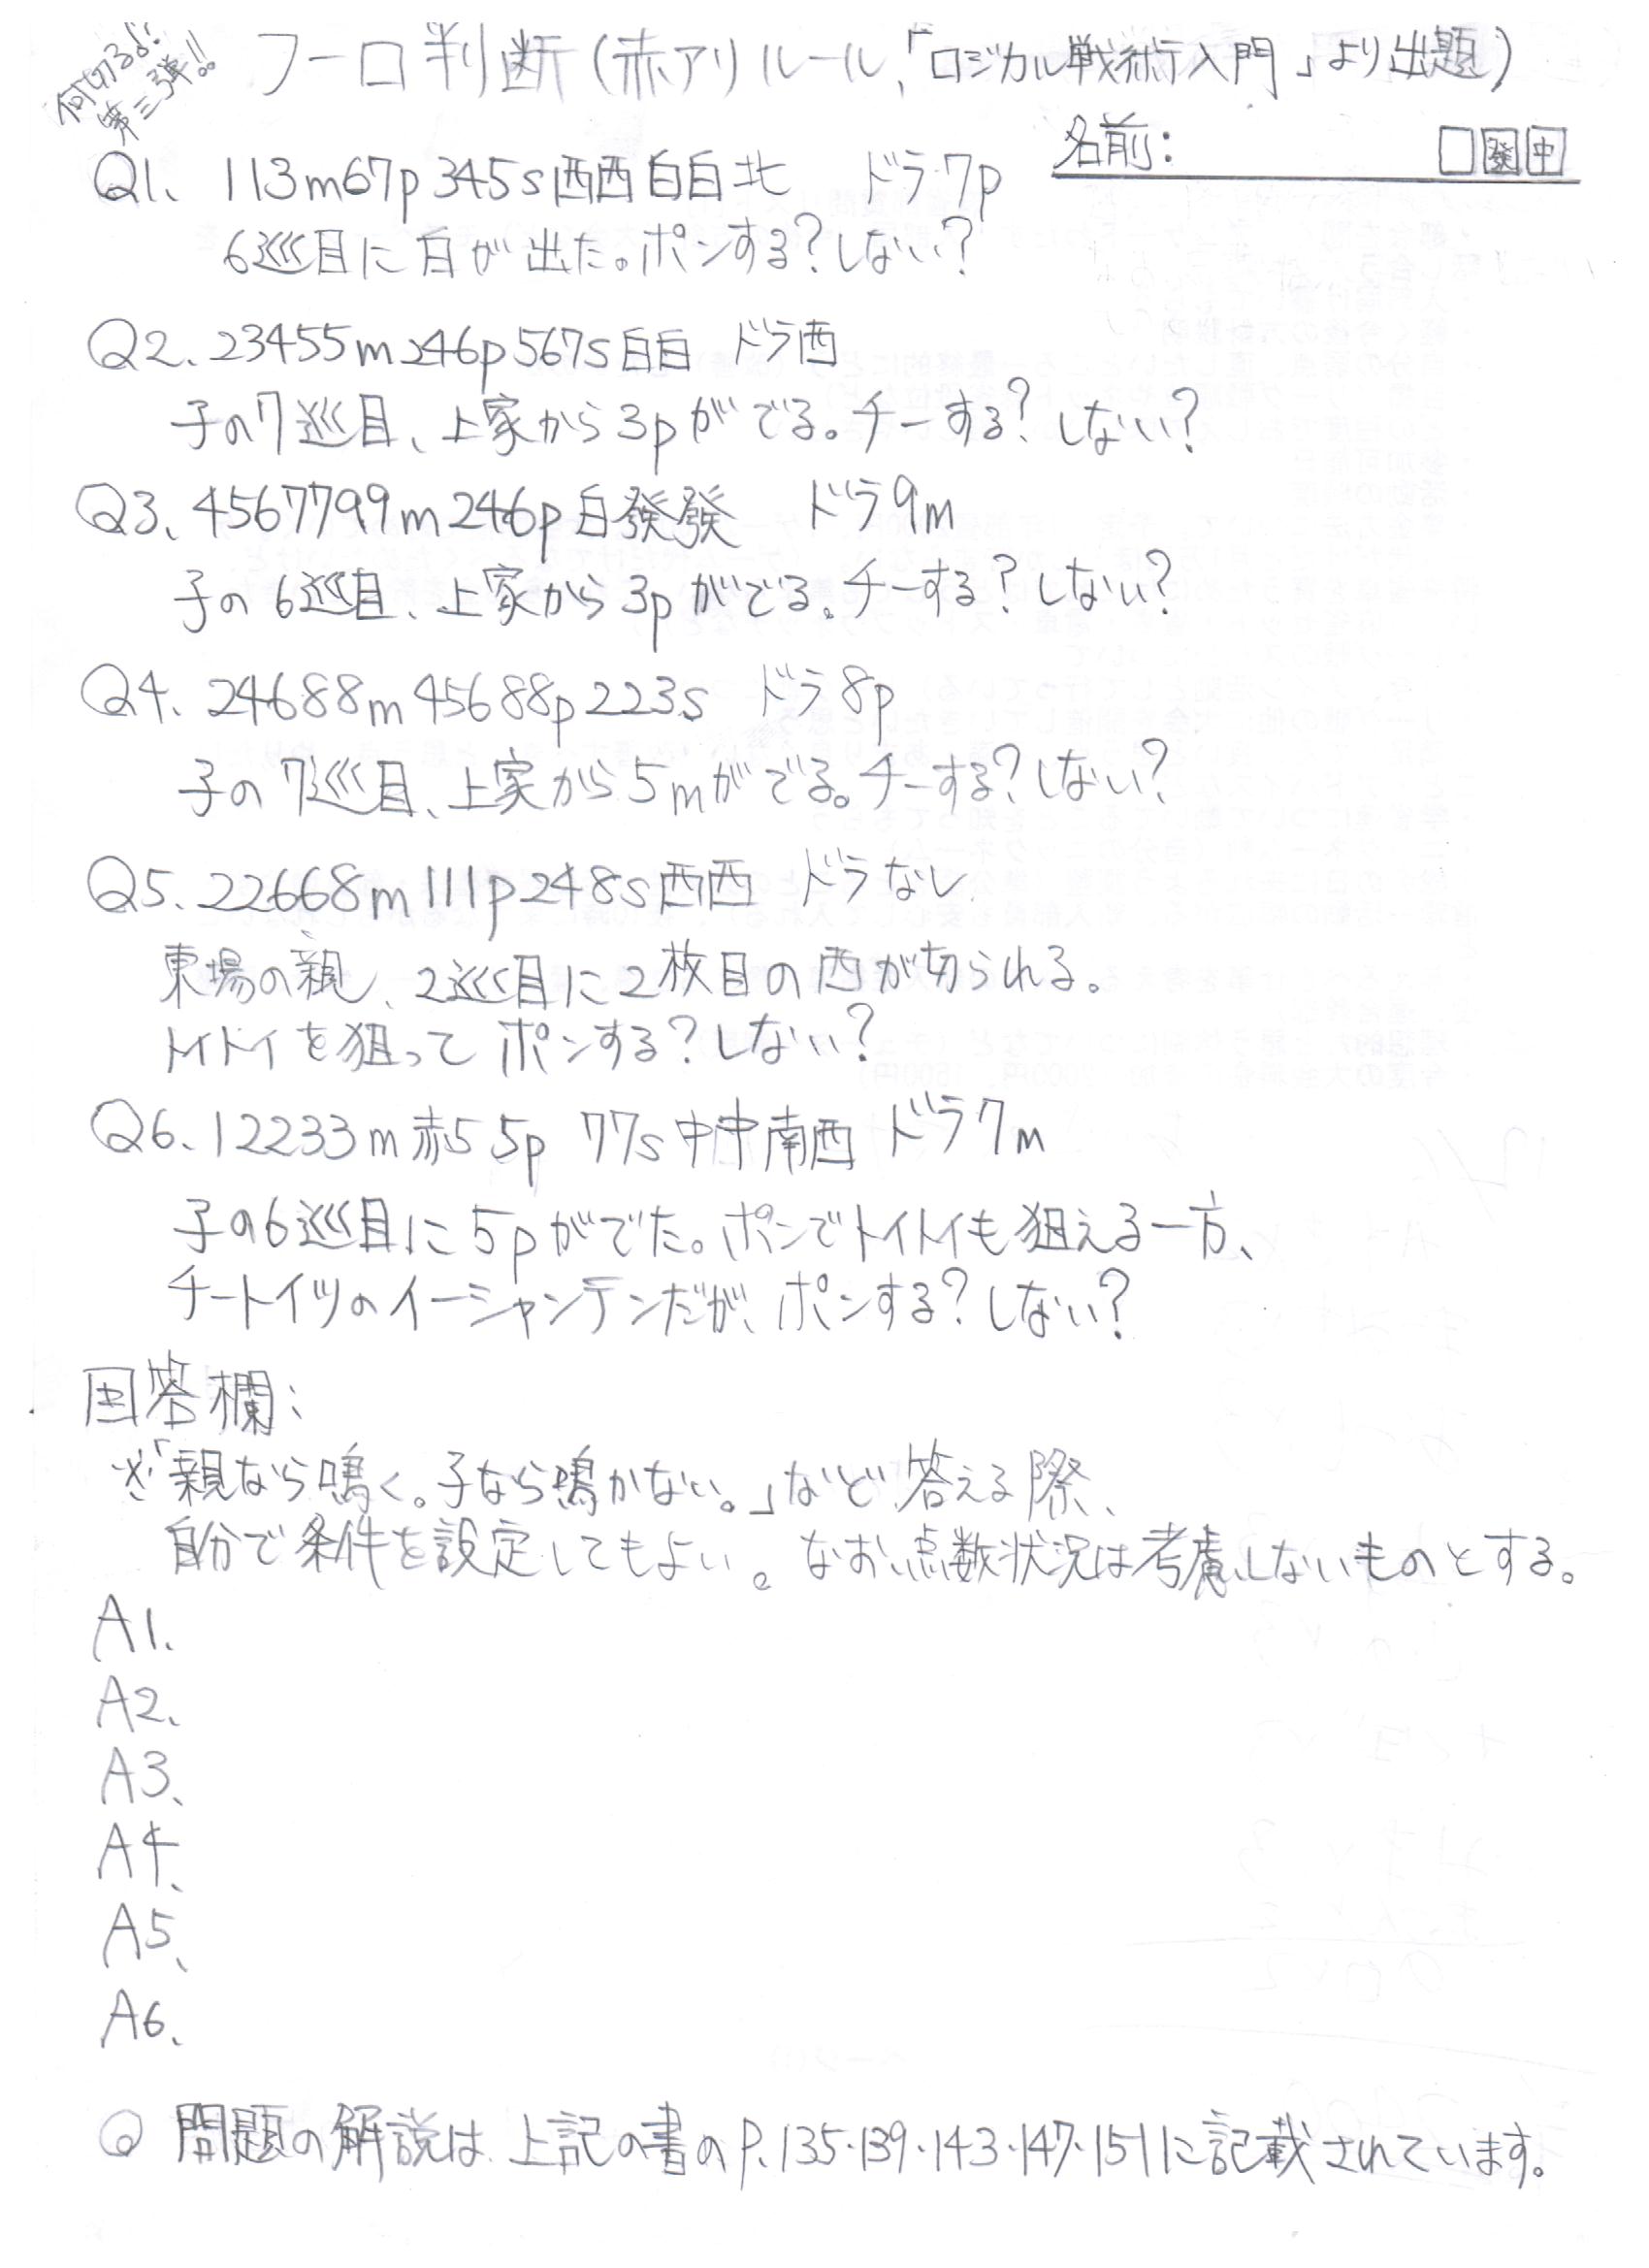 何切る♪?
第三弾!!
フーロ判断(赤アリルール,「ロジカル戦術入門」より出題)
名前: □發中
Q1、113m67p345s西西白白北 ドラ7p
6巡目に白が出た。ポンする?しない?
Q2、23455m246p567s白白 ドラ西
子の7巡目、上家から3pがでる。チーする?しない?
Q3、4567799m246p白發發 ドラ9m
子の6巡目、上家から3pがでる。チーする?しない?
Q4、24688m45688p223s ドラ8p
子の7巡目、上家から5mがでる。チーする?しない?
Q5、22668m111p248s西西 ドラなし
東場の親、2巡目に2枚目の西が切られる。
トイトイを狙ってポンする?しない?
Q6、12233m赤55p 77s中中南西 ドラ7m
子の6巡目に5pがでた。ポンでトイトイも狙える一方、
チートイツのイーシャンテンだが、ポンする?しない?
回答欄:
※「親なら鳴く。子なら鳴かない。」など答える際、
自分で条件を設定してもよい。なお、点数状況は考慮しないものとする。
A1、
A2、
A3、
A4、
A5、
A6、
◎ 問題の解説は、上記の書のP.135・139・143・147・151に記載されています。